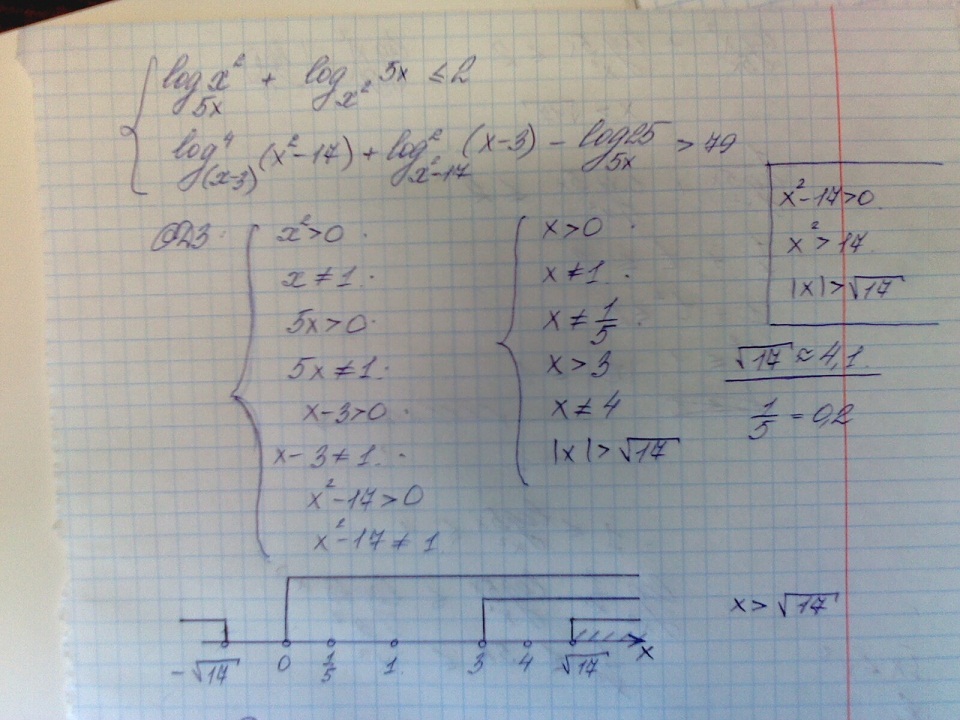 log_{5x} x² + log_{x²} 5x ≤ 2
log⁴_{(x-3)} (x²-17) + log²_{x²-17} (x-3) - log_{5x} 25 > 79
ОДЗ:
x² > 0
x ≠ 1
5x > 0
5x ≠ 1
x-3 > 0
x-3 ≠ 1
x²-17 > 0
x²-17 ≠ 1
x > 0
x ≠ 1
x ≠ 1/5
x > 3
x ≠ 4
|x| > √17
x²-17 > 0
x² > 17
|x| > √17
√17 ≈ 4,1
1/5 = 0,2
-√17 0 1/5 1 3 4 √17 x
x > √17